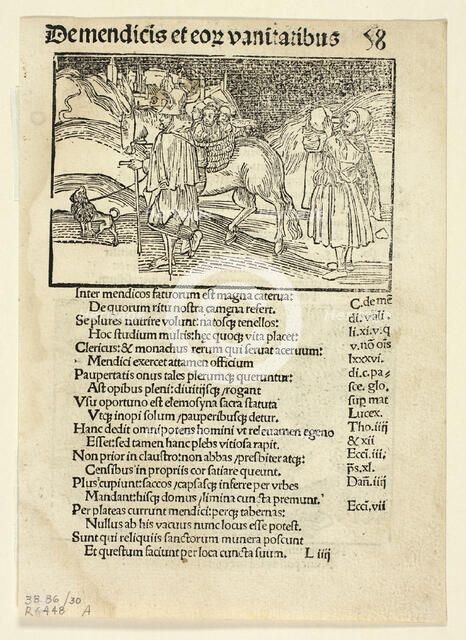 De mendicis et eoꝝ vanitatibus 58
Inter mendicos fatuorum est magna caterua:
De quorum ritu nostra camęna refert.
Se plures nutrire volunt: natosqꝫ tenellos:
Hoc studium multis: hec quoqꝫ vita placet:
Clericus: & monachus rerum qui seruat aceruum:
Mendici exercet attamen officium
Paupertatis onus tales plerumqꝫ queruntur:
Ast opibus pleni: diuitijsqꝫ / rogant
Vsu oportuno est elemosyna sacra statuta
Vtqꝫ inopi solum / pauperibusqꝫ detur.
Hanc dedit omnipotens homini vt releuamen egeno
Esset: sed tamen hanc plebs vitiosa rapit.
Non prior in claustro: non abbas / presbiter atqꝫ:
Censibus in propriis cor satiare queunt.
Plus cupiunt: saccos / capsasqꝫ inferre per vrbes
Mandant: hisqꝫ domus / limina cuncta premunt.
Per plateas currunt mendici: perqꝫ tabernas:
Nullus ab his vacuus nunc locus esse potest.
Sunt qui reliquiis sanctorum munera poscunt
Et questum faciunt per loca cuncta suum. L iiij
C. de mē
di. vali.
li. xi. v. q
v. nō oīs
lxxxvi.
di. c. pa⸗
sce. glo.
sup mat
Lucex.
Tho. iiij
& xii
Ecci. iii.
ps. xl.
Dañ. iiij
Ecci. vii
38.86/30
R6448 A